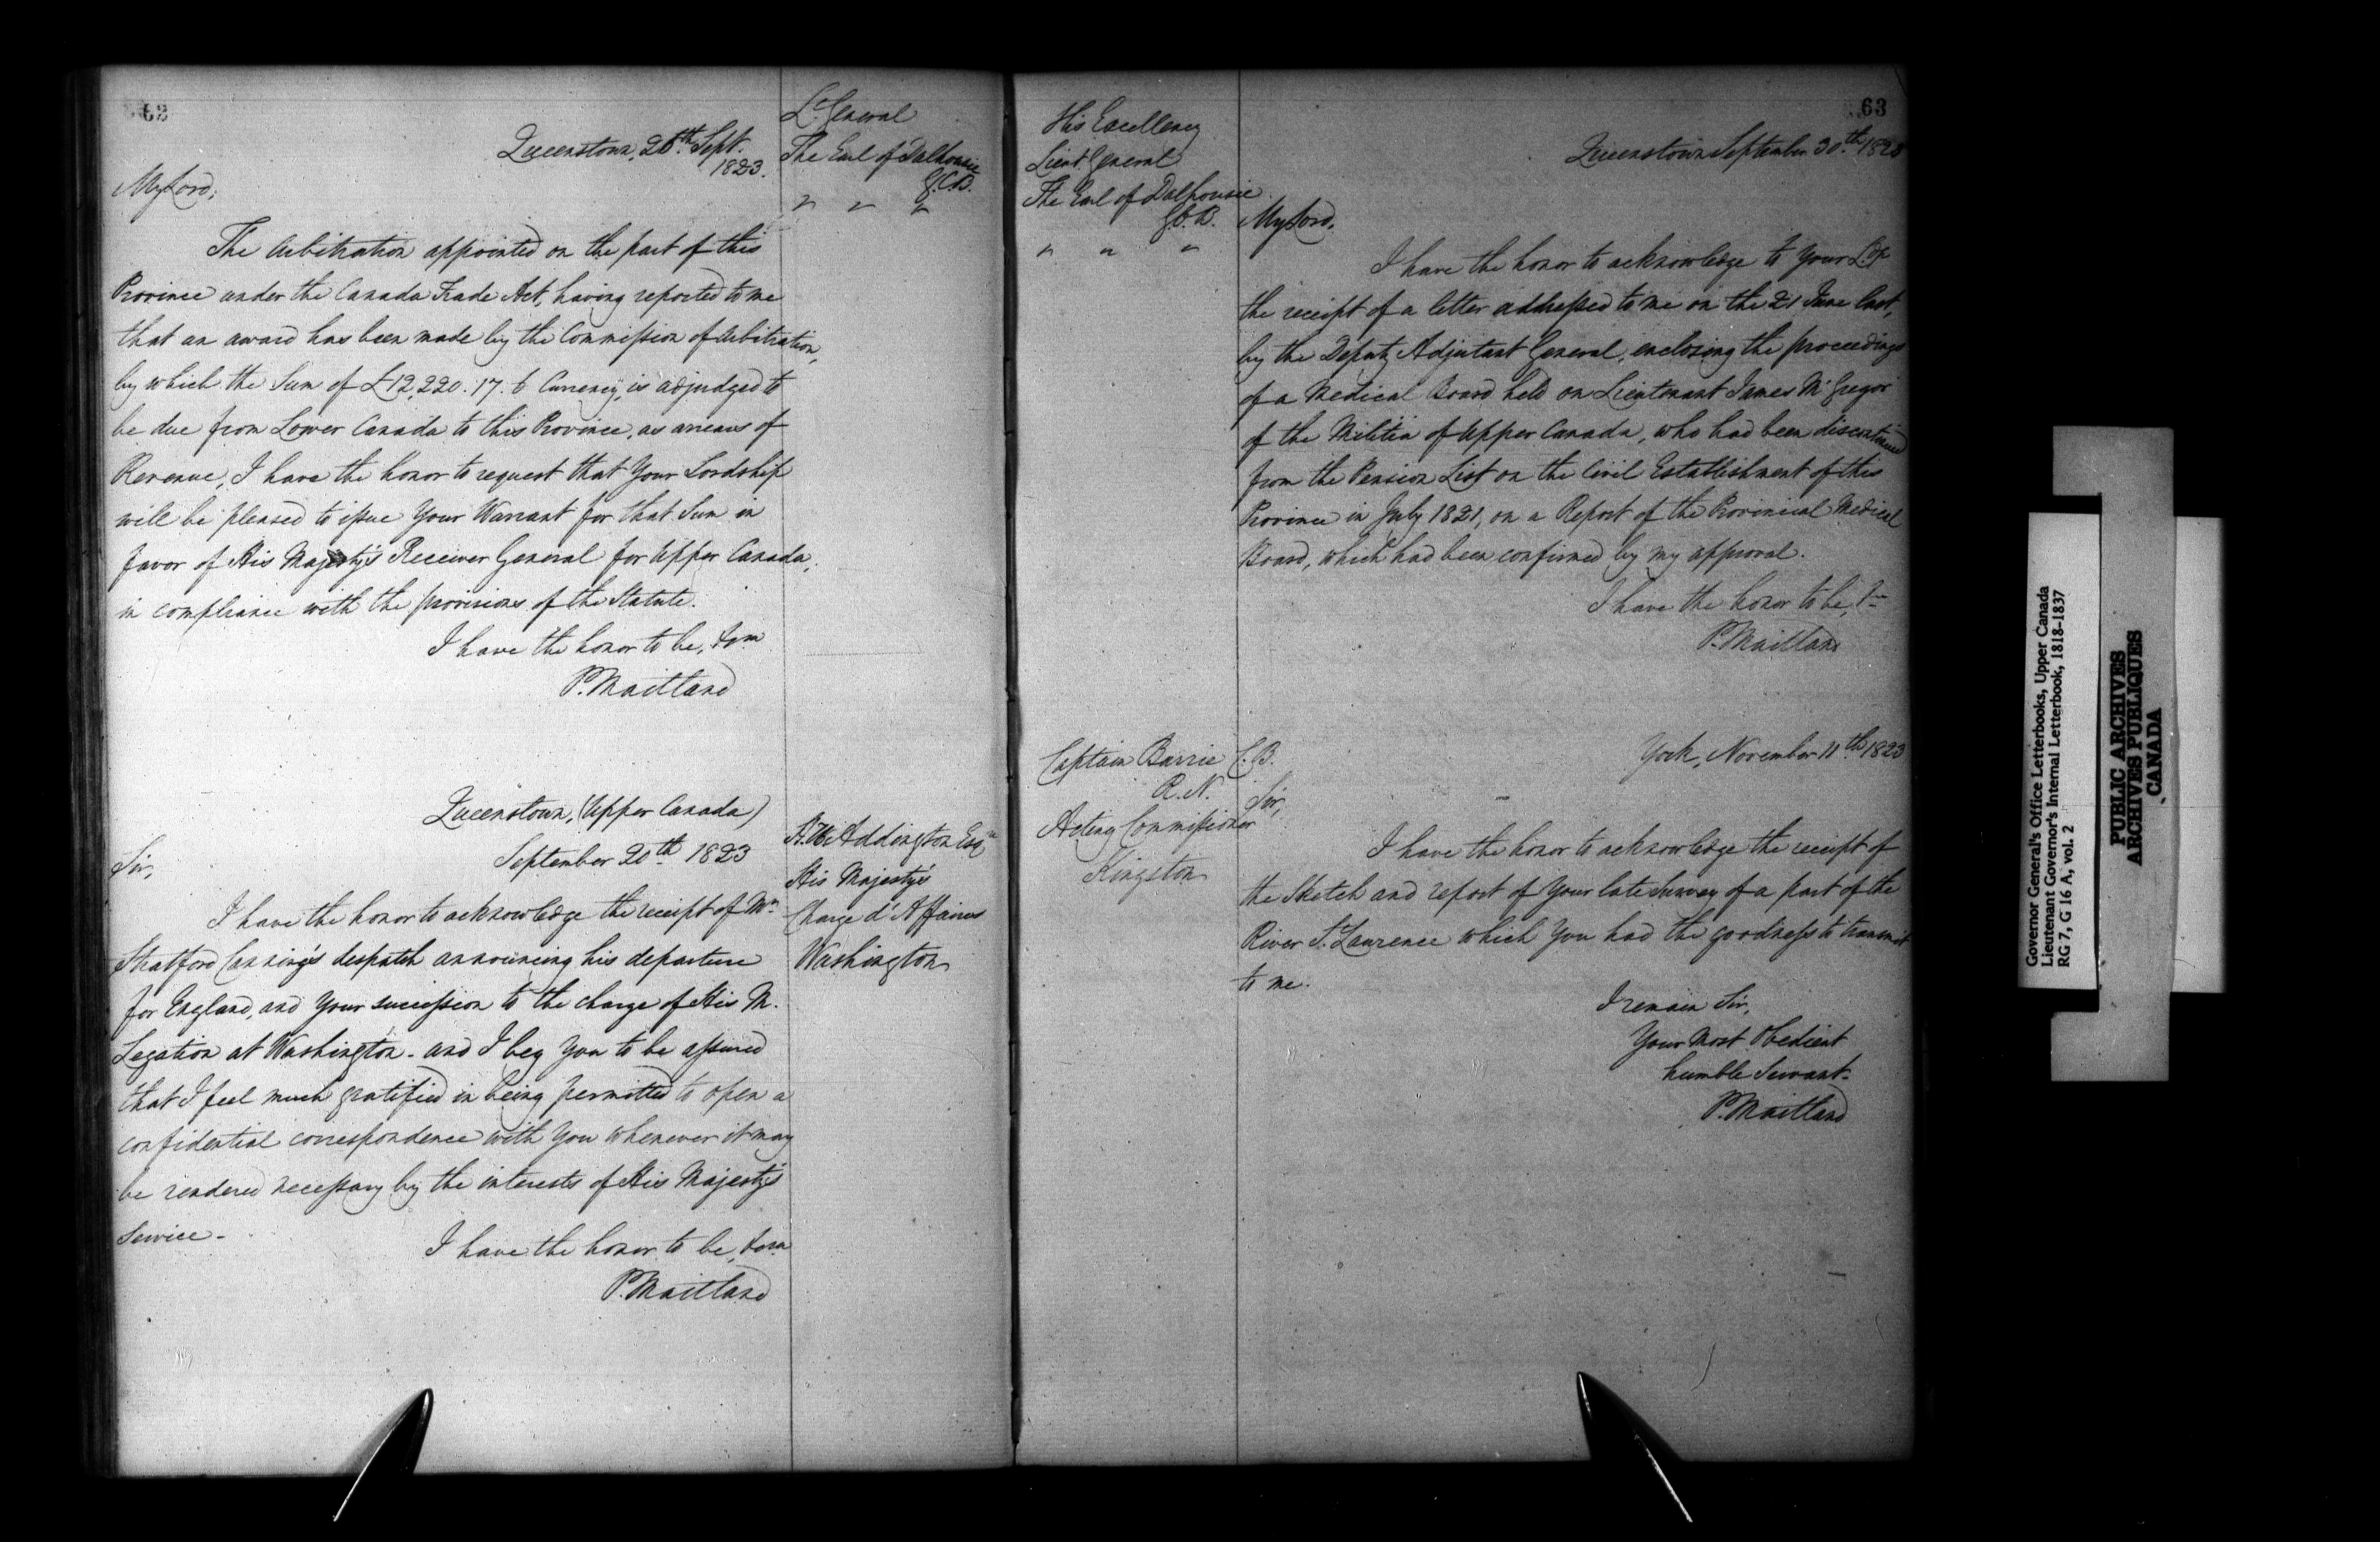 62
Lt. General
The Earl of Dalhousie
G.C.B.
" " "
Queenstown, 26th Sept.
1823.
My Lord,
The Arbitration appointed on the part of this
Province under the Canada Trade Act, having reported to me
that an award has been made by the Commission of Arbitration,
by which the Sum of £12,220. 17. 6 Currency, is adjudged to
be due from Lower Canada to this Province, as arrears of
Revenue, I have the honor to request that Your Lordship
will be pleased to issue Your Warrant for that Sum in
favor of His Majesty's Receiver General for Upper Canada,
in compliance with the provisions of the Statute.
I have the honor to be,
P. Maitland
Queenstown, (Upper Canada)
September 20th 1823
Addington Esqr
His Majesty's
Charge d'Affaires
Washington
Sir,
I have the honor to acknowledge the receipt of Mr.
Stratford Canning's despatch announcing his departure
for England, and Your succession to the charge of His M.
Legation at Washington - and I beg You to be assured
that I feel much gratified in being permitted to open a
confidential correspondence with You whenever it may
be rendered necessary by the interests of His Majesty's
Service -
I have the honor to be,
P. Maitland
63
His Excellency
Lieut General
The Earl of Dalhousie
G.C.B.
" " "
Queenstown September 30th 1823
My Lord,
I have the honor to acknowledge to Your Ldp
the receipt of a letter addressed to me on the 21 June last,
by the Deputy Adjutant General, enclosing the proceedings
of a Medical Board held on Lieutenant James McGregor
of the Militia of Upper Canada, who had been discontinued
from the Pension List on the Civil Establishment of this
Province in July 1821, on a Report of the Provincial Medical
Board, which had been confirmed by my approval.
I have the honor to be,
P. Maitland
Captain Barrie C.B.
R.N.
Acting Commissioner
Kingston
York, November 11th 1823
Sir,
I have the honor to acknowledge the receipt of
the Sketch and report of Your late Survey of a part of the
River St. Laurence which You had the goodness to transmit
to me.
I remain Sir,
Your Most Obedient
humble Servant.
P. Maitland
Governor General's Office Letterbooks, Upper Canada
Lieutenant Governor's Internal Letterbook, 1818-1837
RG 7, G 16 A, vol. 2
PUBLIC ARCHIVES
ARCHIVES PUBLIQUES
CANADA